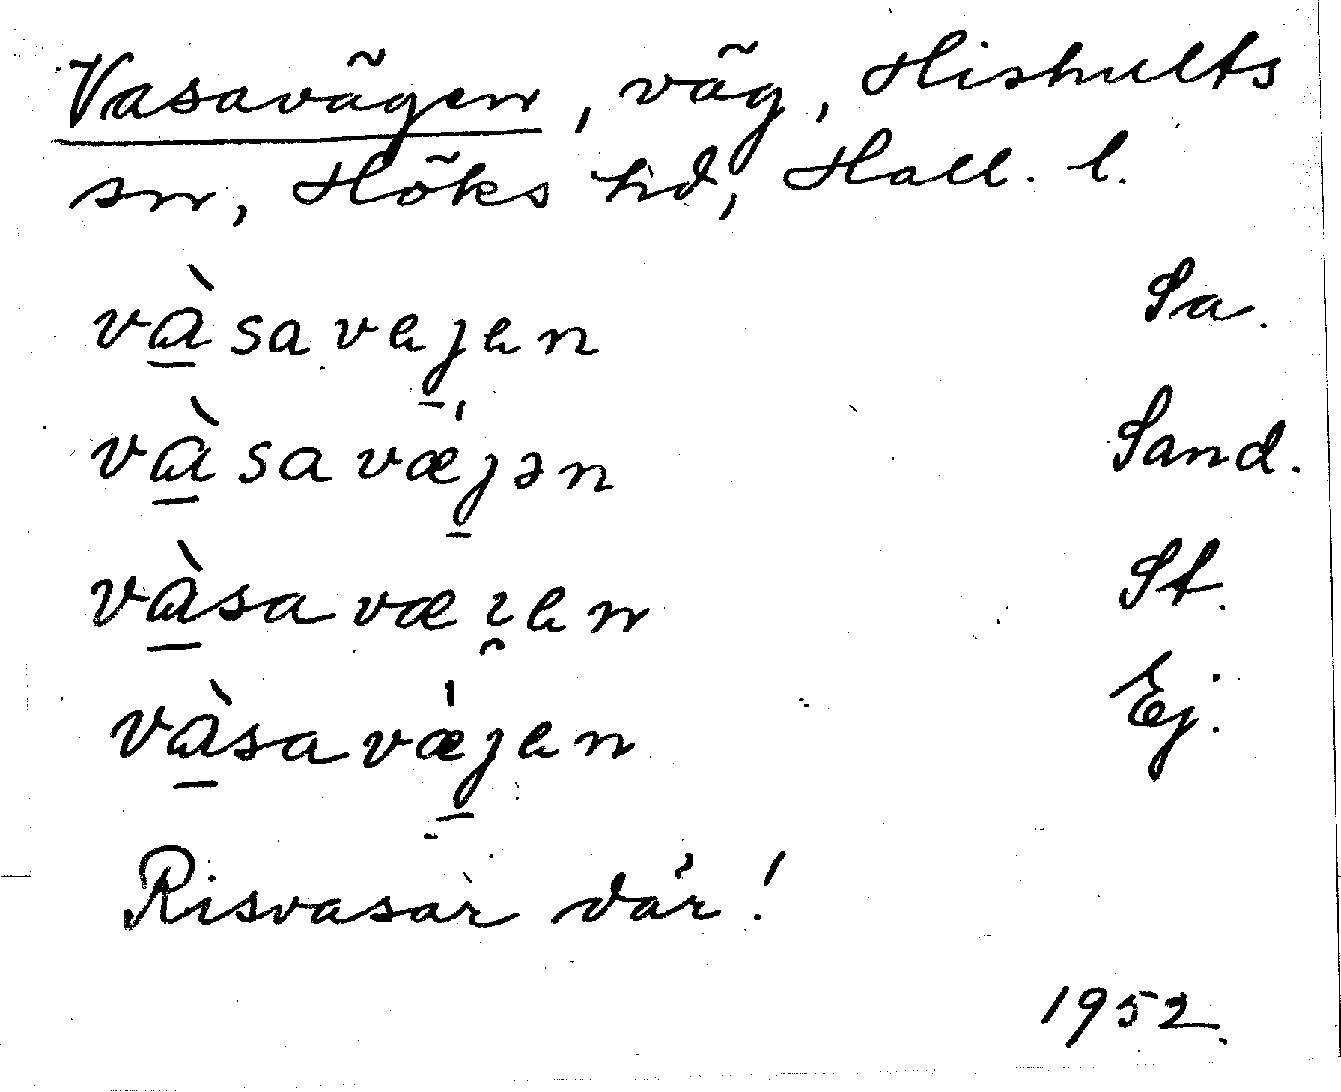 Vasavägen, väg, Hishults
sn, Höks hd, Hall. l.
và̱savejen Sa.
và̱savǽjən Sand.
và̱savæɪen St.
và̱savǽjen Ej.
Risvasar där!
1952.